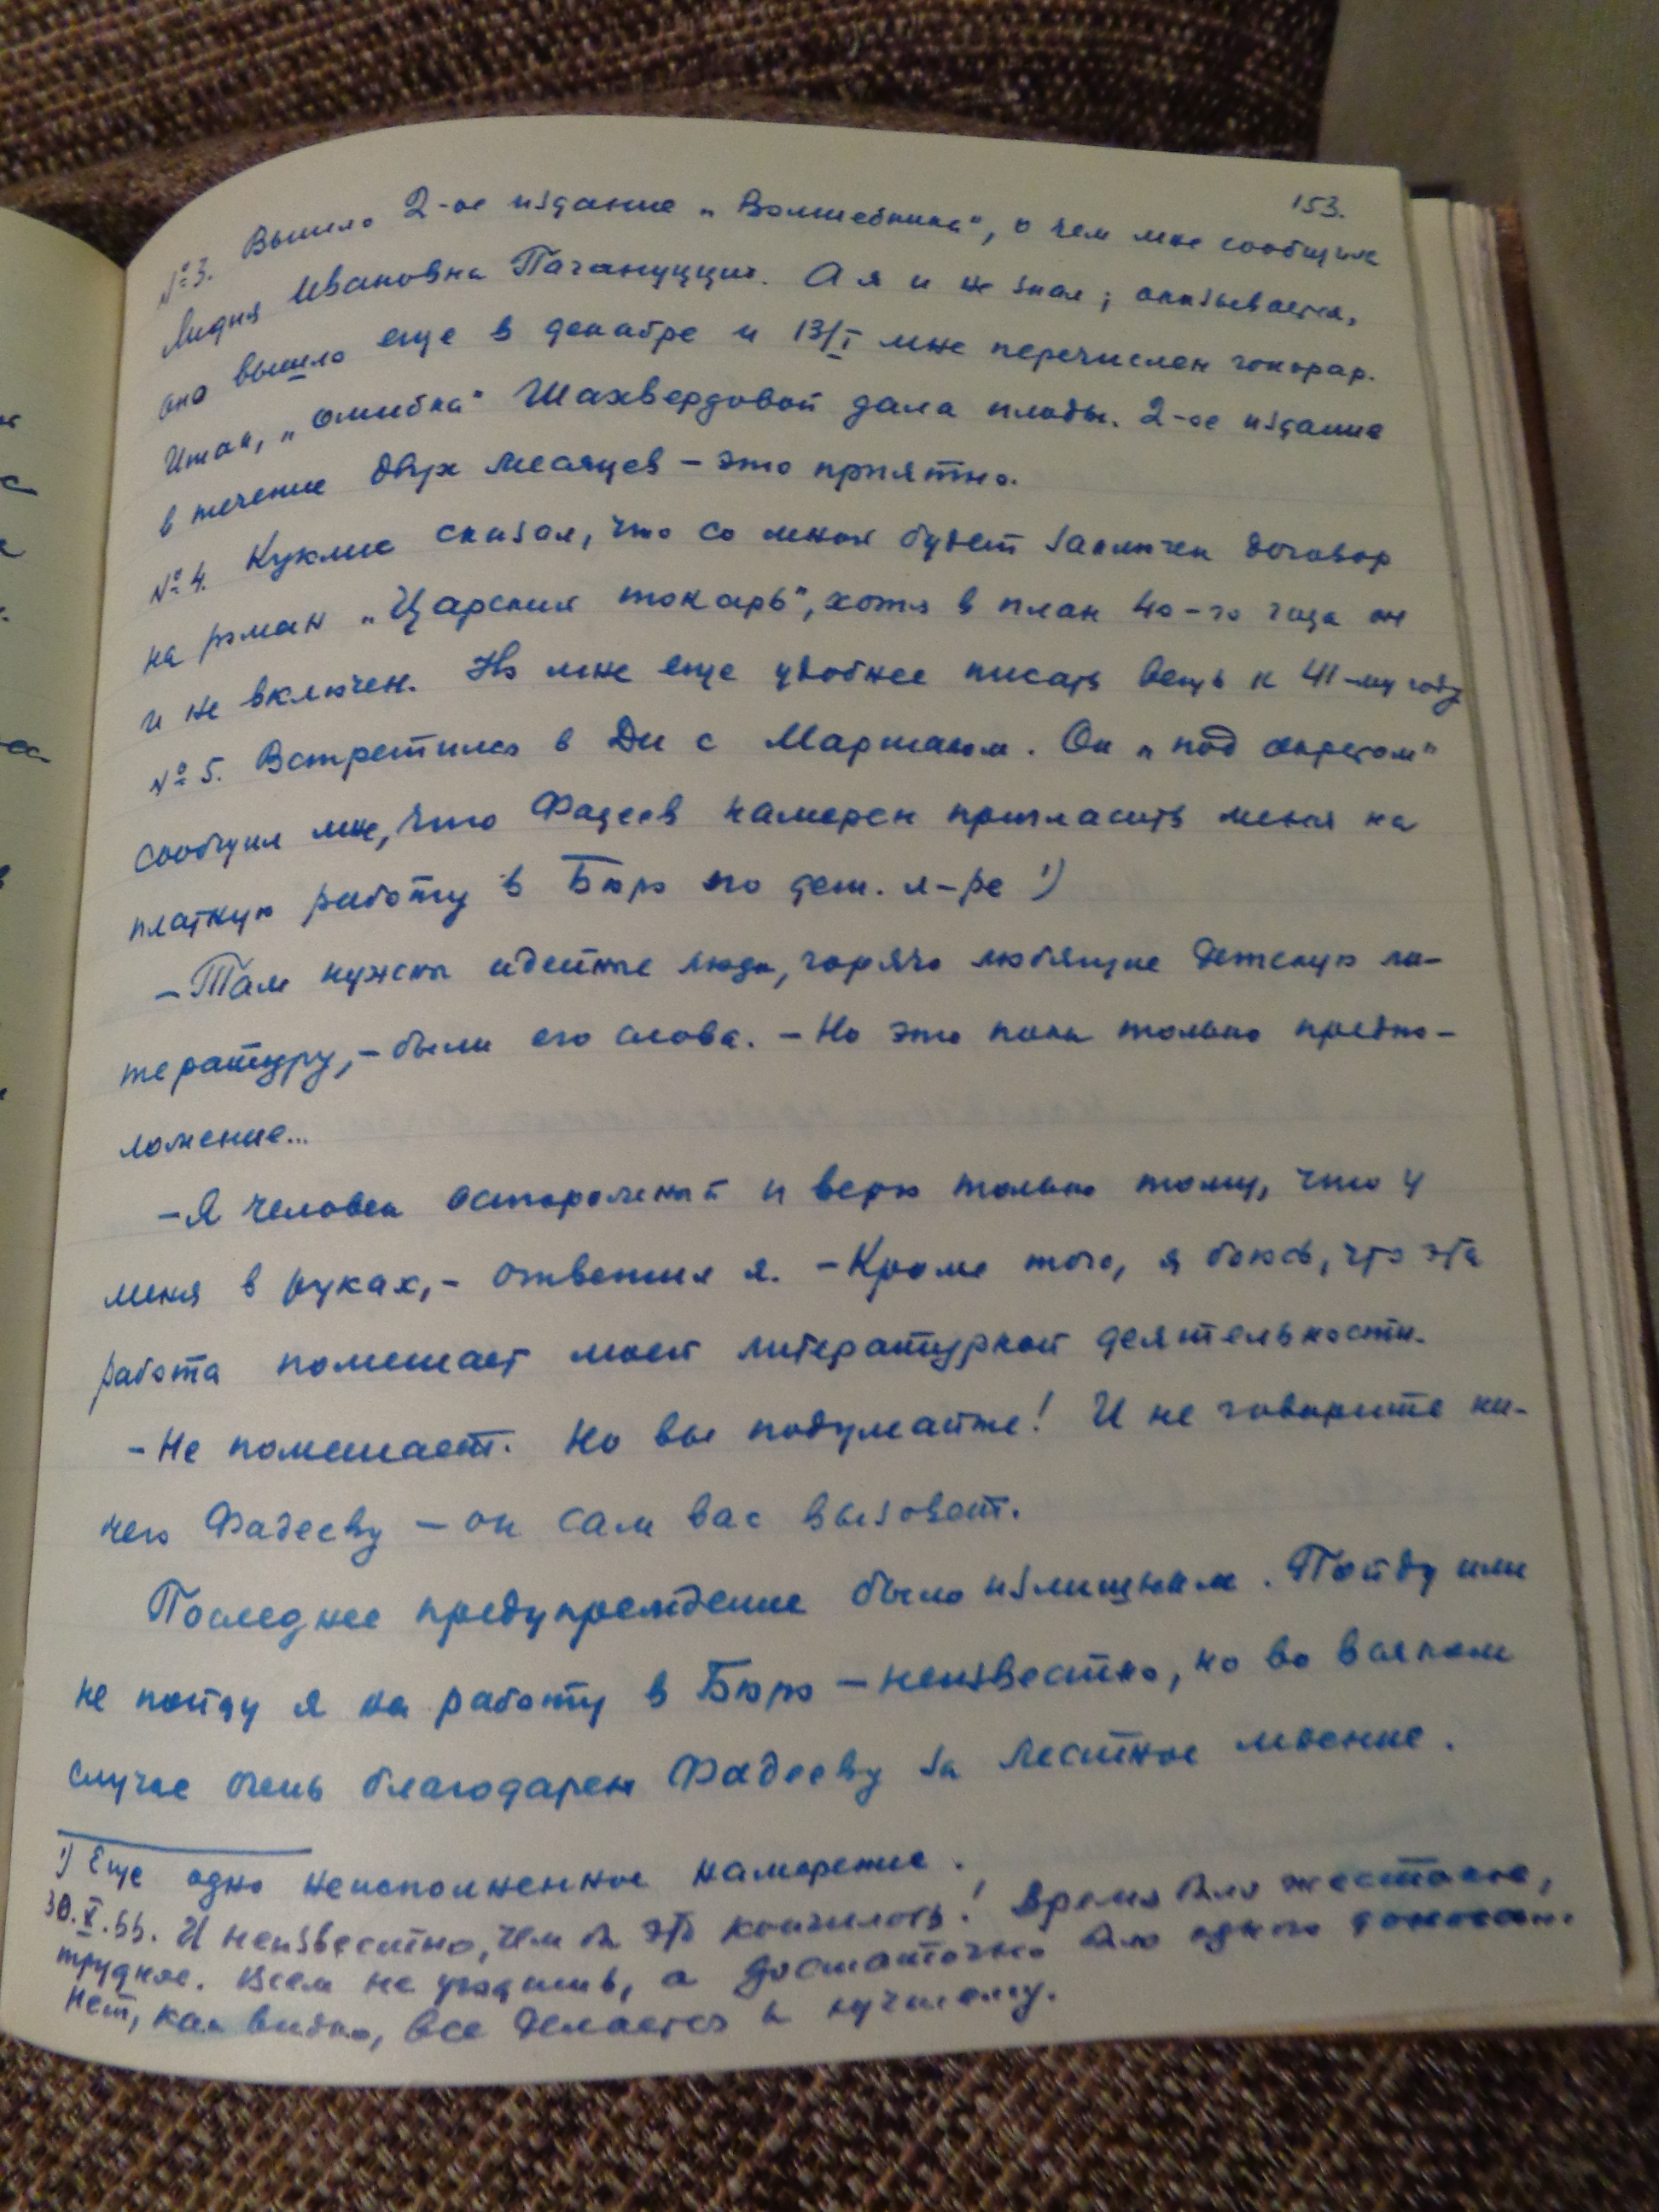 153.
№3. Вышло 2-ое издание „Волшебника", о чем мне сообщила
Лидия Ивановна Пагануцци. А я и не знал; оказывается,
оно вышло еще в декабре и 13/I мне перечислен гонорар.
Итак, „ошибка" Шахвердовой дала плоды. 2-ое издание
в течение двух месяцев – это приятно.
№4. Куклис сказал, что со мной будет заключен договор
на роман „Царский токарь", хотя в план 40-го года он
и не включен. Но мне еще удобнее писать вещь к 41-му году
№5. Встретился в Ди с Маршаком. Он „под секретом"
сообщил мне, что Фадеев намерен пригласить меня на
платную работу в Бюро по дет. л-ре 1)
– Там нужны идейные люди, горячо любящие детскую ли-
тературу, – были его слова. – Но это пока только предпо-
ложение...
– Я человек осторожный и верю только тому, что у
меня в руках, – ответил я. – Кроме того, я боюсь, что эта
работа помешает моей литературной деятельности.
– Не помешает. Но вы подумайте! И не говорите ни-
чего Фадееву – он сам вас вызовет.
Последнее предупреждение было излишним. Пойду или
не пойду я на работу в Бюро – неизвестно, но во всяком
случае очень благодарен Фадееву за лестное мнение.
1) Еще одно неисполненное намерение.
30.X.55. И неизвестно, чем бы это кончилось! Время было жестокое,
трудное. Всем не угодишь, а достаточно было одного доноса...
Нет, как видно, все делается к лучшему.